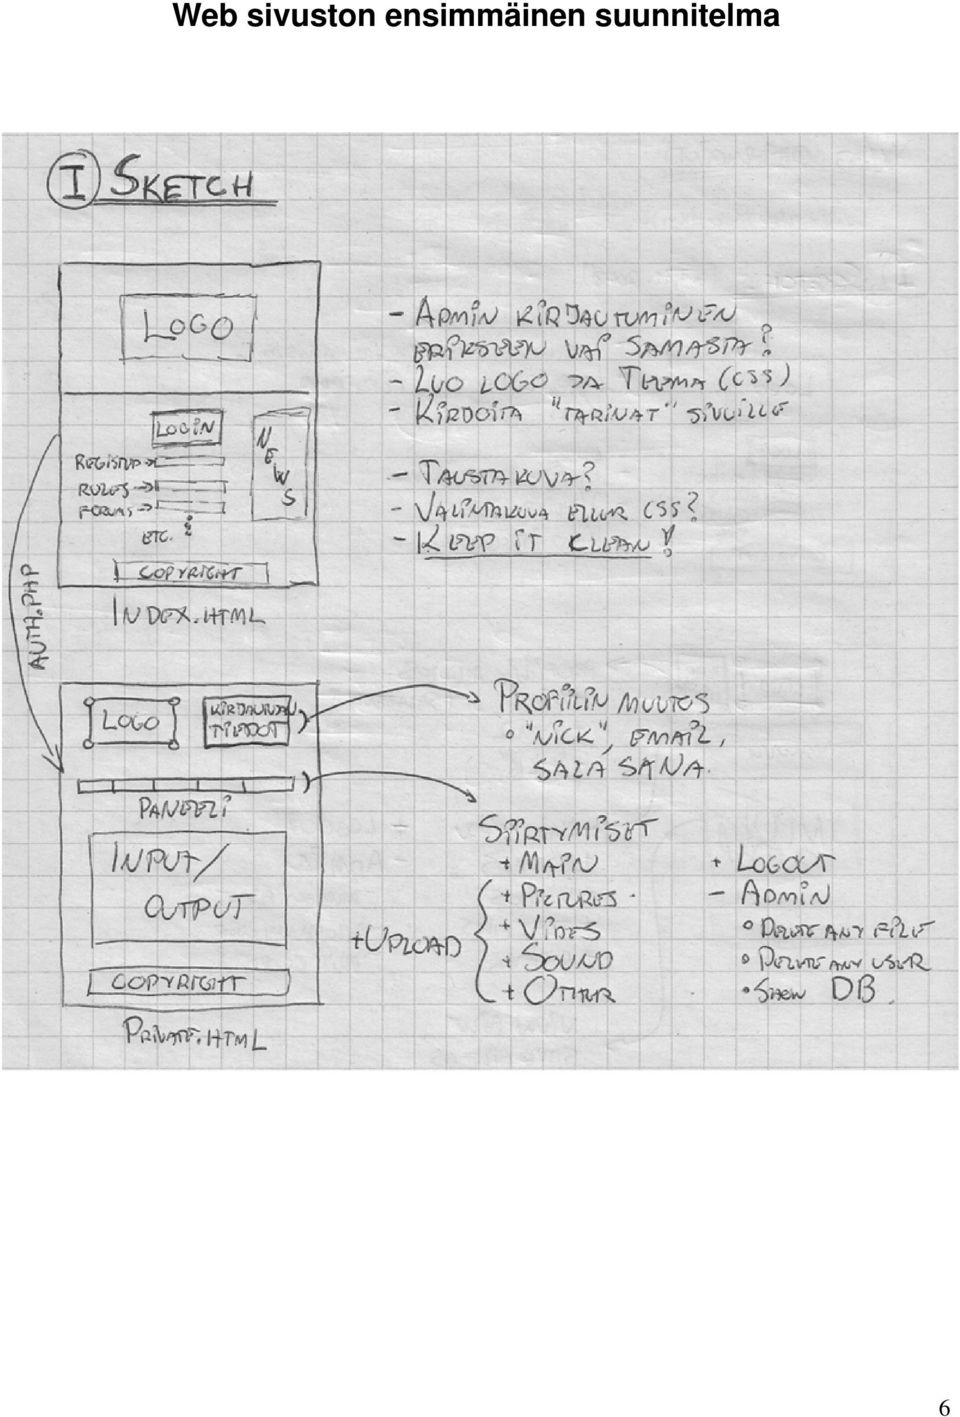 Web sivuston ensimmäinen suunnitelma
I SKETCH
LOGO
LOGIN
NEWS
REGISTER
RULES
FORUMS
ETC.
COPYRIGHT
INDEX.HTML
AUTH.PHP
- ADMIN KIRJAUTUMINEN
ERIKSEEN VAI SAMASTA?
- LUO LOGO JA TEEMA (CSS)
- KIRJOITA "TARINAT" SIVUILLE
- TAUSTA KUVA?
- VALINTAKUVA ELLER CSS?
- KEEP IT CLEAN!
LOGO
KIRJAUTUJAN
TIEDOT
PANEELI
INPUT/
OUTPUT
COPYRIGHT
PRIVATE.HTML
PROFIILIN MUUTOS
° "NICK", EMAIL,
SALA SANA.
SIIRTYMISET
+ MAIN
+ PICTURES
+ VIDEOS
+ SOUND
+ OTHER
+UPLOAD
+ LOGOUT
- ADMIN
° DELETE ANY FILE
° DELETE ANY USER
° SHOW DB
6